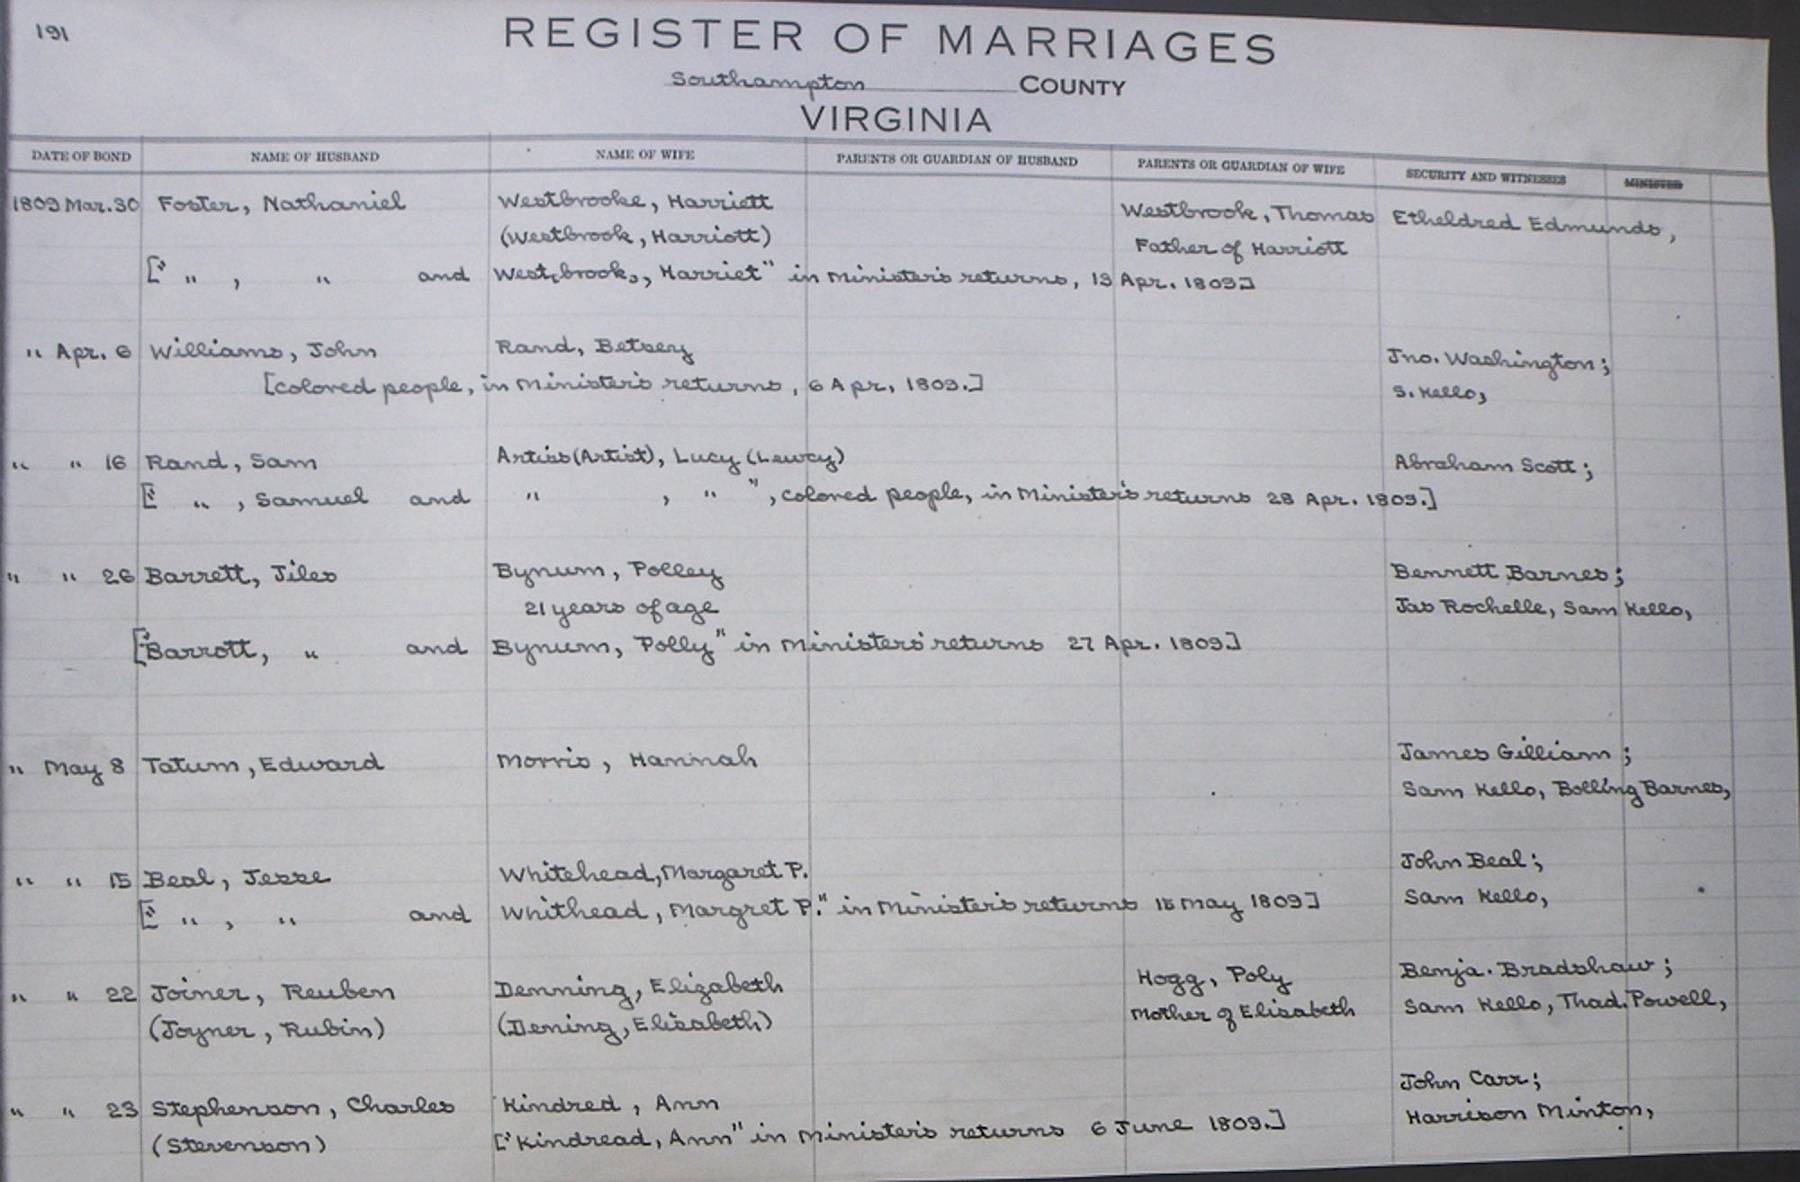 191
REGISTER OF MARRIAGES
Southampton COUNTY
VIRGINIA
DATE OF BOND NAME OF HUSBAND NAME OF WIFE PARENTS OR GUARDIAN OF HUSBAND PARENTS OR GUARDIAN OF WIFE SECURITY AND WITNESSES MINISTER
1809 Mar. 30 Foster, Nathaniel Westbrooke, Harriett Westbrook, Thomas Etheldred Edmunds,
(Westbrook, Harriott) Father of Harriott
[" " , " and West,brook,, Harriet" in Minister's returns, 13 Apr. 1809]
" Apr. 6 Williams, John Rand, Betsey Jno. Washington;
[colored people, in Minister's returns, 6 Apr, 1809.] S. Kello,
" " 16 Rand, Sam Artiss (Artist), Lucy (Lewcy) Abraham Scott;
[" " , Samuel and " , " ", colored people, in Minister's returns 28 Apr. 1809.]
" " 26 Barrett, Jiles Bynum, Polley Bennett Barnes;
21 years of age Jas Rochelle, Sam Kello,
["Barrott, " and Bynum, Polly" in Ministers' returns 27 Apr. 1809]
" May 8 Tatum, Edward Morris, Hannah James Gilliam;
Sam Kello, Bolling Barnes,
" " 15 Beal, Jesse Whitehead, Margaret P. John Beal;
[" " , " and Whithead, Margret P." in Minister's returns 15 May 1809] Sam Kello,
" " 22 Joiner, Reuben Denning, Elizabeth Hogg, Poly Benja. Bradshaw;
(Joyner, Rubin) (Dening, Elisabeth) Mother of Elisabeth Sam Kello, Thad. Powell,
" " 23 Stephenson, Charles Kindred, Ann John Carr;
(Stevenson) ["Kindread, Ann" in Minister's returns 6 June 1809.] Harrison Minton,